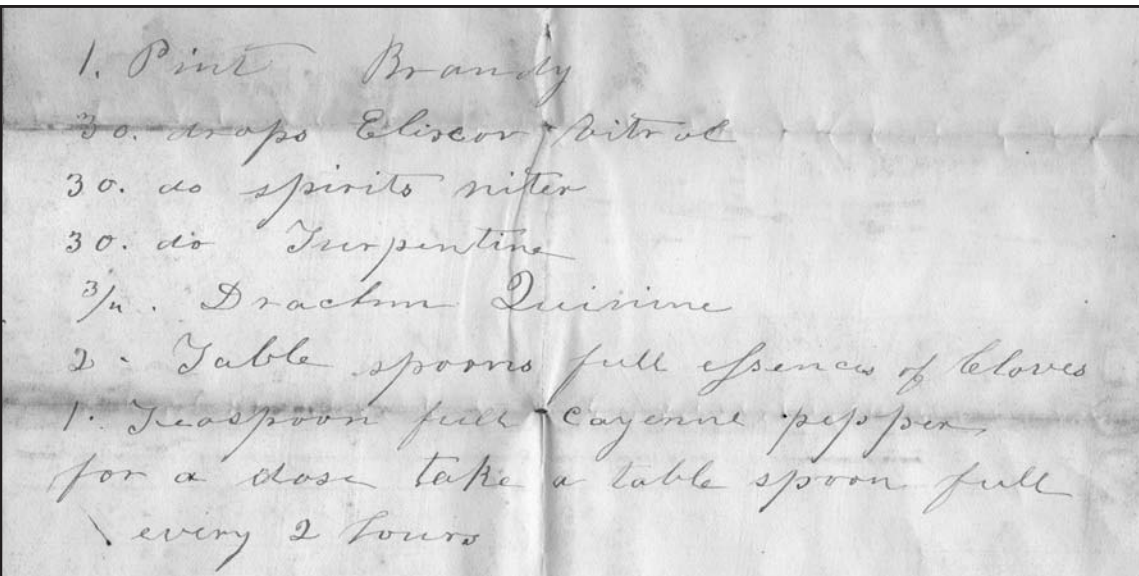 1. Pint Brandy
30. drops Elixcor Vitrol
30. do spirits niter
30. do Turpentine
3/4. Drachm Quinine
2 - Table spoons full essences of Cloves
1. Teaspoon full Cayenne pepper
for a dose take a table spoon full
every 2 hours